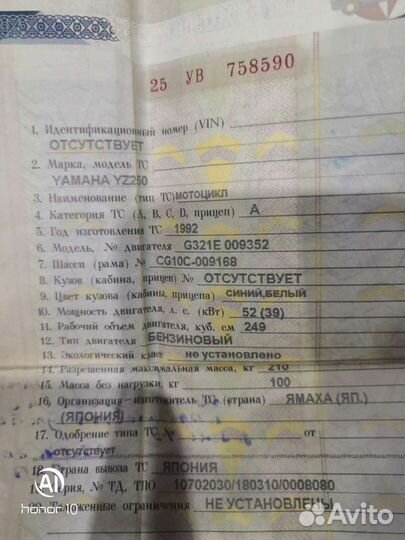 25 УВ 758590
1. Идентификационный номер (VIN)
ОТСУТСТВУЕТ
2. Марка, модель ТС
YAMAHA YZ250
3. Наименование (тип ТС) МОТОЦИКЛ
4. Категория ТС (A, B, C, D, прицеп) A
5. Год изготовления ТС 1992
6. Модель, № двигателя G321E 009352
7. Шасси (рама) № CG10C-009168
8. Кузов (кабина, прицеп) № ОТСУТСТВУЕТ
9. Цвет кузова (кабины, прицепа) СИНИЙ,БЕЛЫЙ
10. Мощность двигателя, л. с. (кВт) 52 (39)
11. Рабочий объем двигателя, куб. см 249
12. Тип двигателя БЕНЗИНОВЫЙ
13. Экологический класс не установлено
14. Разрешенная максимальная масса, кг 210
15. Масса без нагрузки, кг 100
16. Организация - изготовитель ТС (страна) ЯМАХА (ЯП.)
(ЯПОНИЯ)
17. Одобрение типа ТС № от
отсутствует
18. Страна вывоза ТС ЯПОНИЯ
19. Серия, № ТД, ТПО 10702030/180310/0008080
20. Таможенные ограничения НЕ УСТАНОВЛЕНЫ
AI
honor 10
Avito